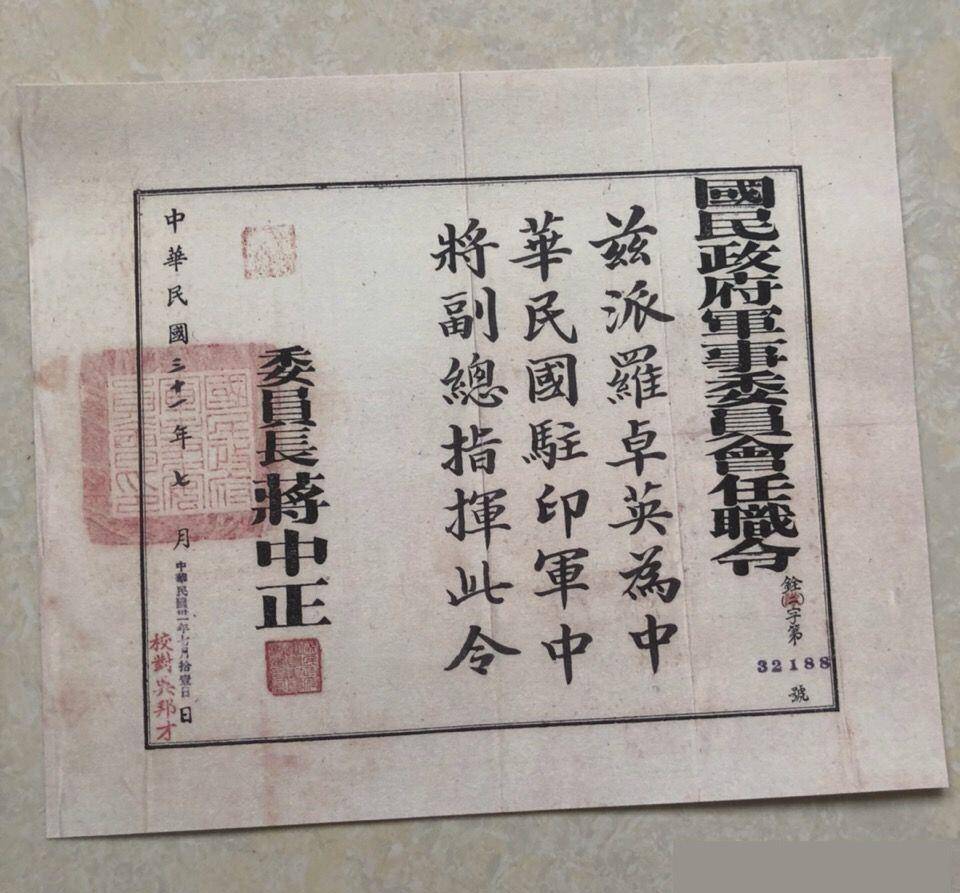 國民政府軍事委員會任職令
銓字第
32188
號
茲派羅卓英為中
華民國駐印軍中
將副總指揮此令
委員長蔣中正
中華民國三十一年七月日
中華民國卅一年七月拾壹日
校對吳邦才